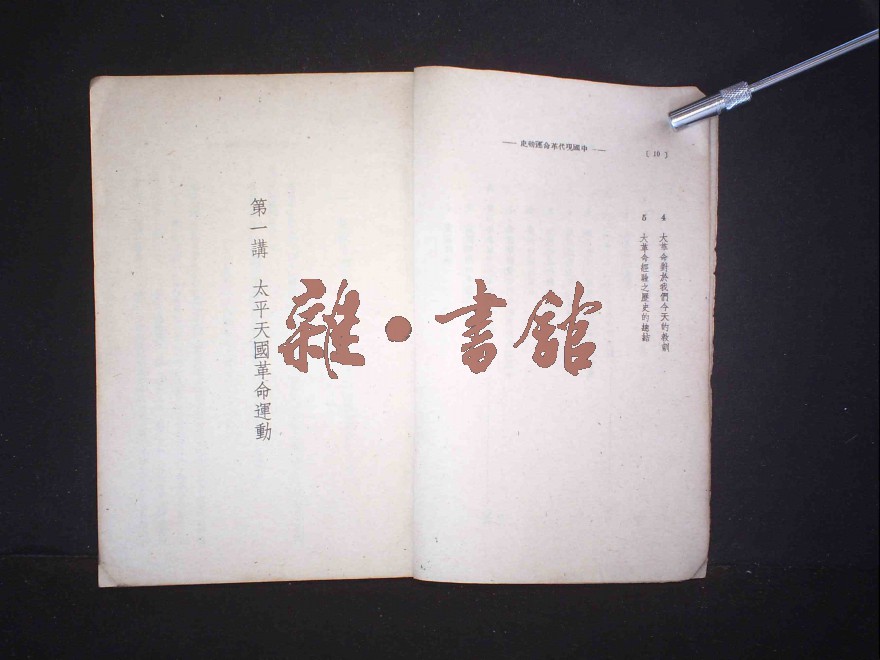 〔10〕
—— 中國現代革命運動史 ——
4 大革命對於我們今天的教訓
5 大革命經驗之歷史的總結
第一講 太平天國革命運動
雜·書館